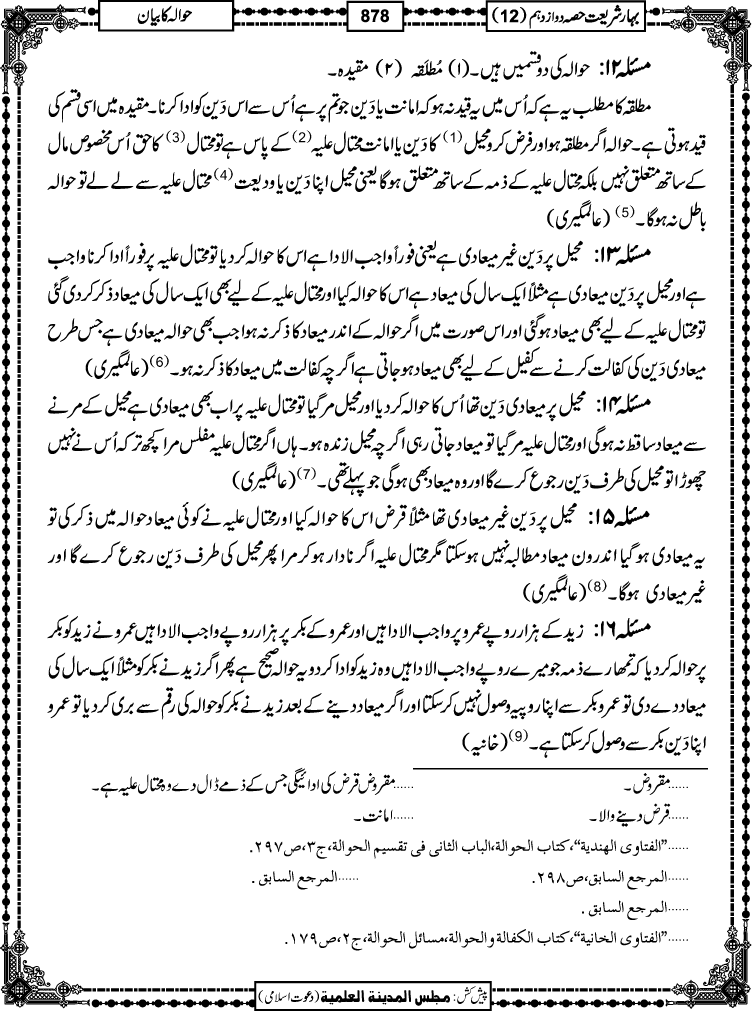 بہارشریعت حصہ دوازدہم (12)
878
حوالہ کا بیان
مسئلہ ۱۲: حوالہ کی دو قسمیں ہیں۔ (۱) مُطلقہ (۲) مقیدہ۔
مطلقہ کا مطلب یہ ہے کہ اُس میں یہ قید نہ ہو کہ امانت یا دَین جو تم پر ہے اُس سے اس دَین کو ادا کرنا۔ مقیدہ میں اسی قسم کی
قید ہوتی ہے۔ حوالہ اگر مطلقہ ہو اور فرض کرو محیل (1) کا دَین یا امانت محتال علیہ (2) کے پاس ہے تو محتال (3) کا حق اُس مخصوص مال
کے ساتھ متعلق نہیں بلکہ محتال علیہ کے ذمہ کے ساتھ متعلق ہوگا یعنی محیل اپنا دَین یا ودیعت (4) محتال علیہ سے لے لے تو حوالہ
باطل نہ ہوگا۔ (5) (عالمگیری)
مسئلہ ۱۳: محیل پر دَین غیر میعادی ہے یعنی فوراً واجب الادا ہے اس کا حوالہ کر دیا تو محتال علیہ پر فوراً ادا کرنا واجب
ہے اور محیل پر دَین میعادی ہے مثلاً ایک سال کی میعاد ہے اس کا حوالہ کیا اور محتال علیہ کے لیے بھی ایک سال کی میعاد ذکر کر دی گئی
تو محتال علیہ کے لیے بھی میعاد ہوگئی اور اس صورت میں اگر حوالہ کے اندر میعاد کا ذکر نہ ہوا جب بھی حوالہ میعادی ہے جس طرح
میعادی دَین کی کفالت کرنے سے کفیل کے لیے بھی میعاد ہو جاتی ہے اگرچہ کفالت میں میعاد کا ذکر نہ ہو۔ (6) (عالمگیری)
مسئلہ ۱۴: محیل پر میعادی دَین تھا اُس کا حوالہ کر دیا اور محیل مر گیا تو محتال علیہ پر اب بھی میعادی ہے محیل کے مرنے
سے میعاد ساقط نہ ہوگی اور محتال علیہ مر گیا تو میعاد جاتی رہی اگرچہ محیل زندہ ہو۔ ہاں اگر محتال علیہ مفلس مرا کچھ ترکہ اُس نے نہیں
چھوڑا تو محیل کی طرف دَین رجوع کرے گا اور وہ میعاد بھی ہوگی جو پہلے تھی۔ (7) (عالمگیری)
مسئلہ ۱۵: محیل پر دَین غیر میعادی تھا مثلاً قرض اس کا حوالہ کیا اور محتال علیہ نے کوئی میعاد حوالہ میں ذکر کی تو
یہ میعادی ہوگیا اندرون میعاد مطالبہ نہیں ہوسکتا مگر محتال علیہ اگر نادار ہو کر مرا پھر محیل کی طرف دَین رجوع کرے گا اور
غیر میعادی ہوگا۔ (8) (عالمگیری)
مسئلہ ۱۶: زید کے ہزار روپے عمرو پر واجب الادا ہیں اور عمرو کے بکر پر ہزار روپے واجب الادا ہیں عمرو نے زید کو بکر
پر حوالہ کر دیا کہ تمھارے ذمہ جو میرے روپے واجب الادا ہیں وہ زید کو ادا کر دو یہ حوالہ صحیح ہے پھر اگر زید نے بکر کو مثلاً ایک سال کی
میعاد دے دی تو عمرو بکر سے اپنا روپیہ وصول نہیں کر سکتا اور اگر میعاد دینے کے بعد زید نے بکر کو حوالہ کی رقم سے بری کر دیا تو عمرو
اپنا دَین بکر سے وصول کر سکتا ہے۔ (9) (خانیہ)
......مقروض۔ ......مقروض قرض کی ادائیگی جس کے ذمے ڈال دے وہ محتال علیہ ہے۔
......قرض دینے والا۔ ......امانت۔
......"الفتاوی الهندیة"، کتاب الحوالة، الباب الثانی فی تقسیم الحوالة، ج۳، ص۲۹۷.
......المرجع السابق، ص۲۹۸. ......المرجع السابق .
......المرجع السابق .
......"الفتاوی الخانیة"، کتاب الکفالة والحوالة، مسائل الحوالة، ج۲، ص۱۷۹.
پیش کش: مجلس المدینة العلمیة (دعوت اسلامی)